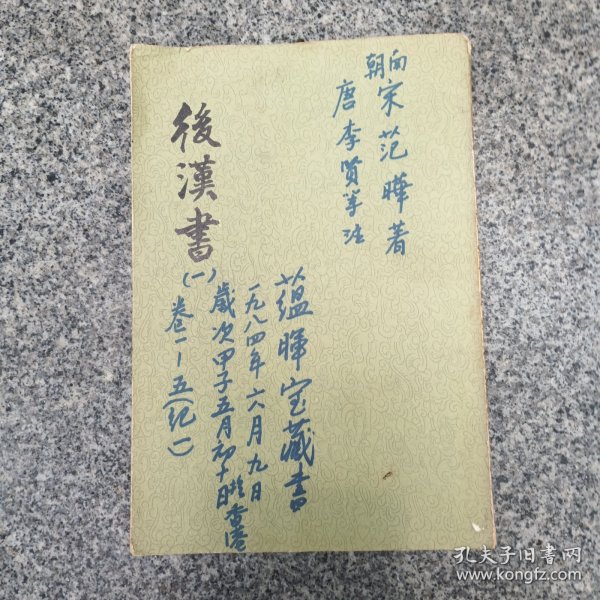 南朝宋范曄著
唐李贤等注
後漢書
(一)
卷一-五(纪一)
蕴暉宝藏書
一九八四年六月九日
歲次甲子五月初十日於香港
孔夫子旧書网
www.kongfz.com